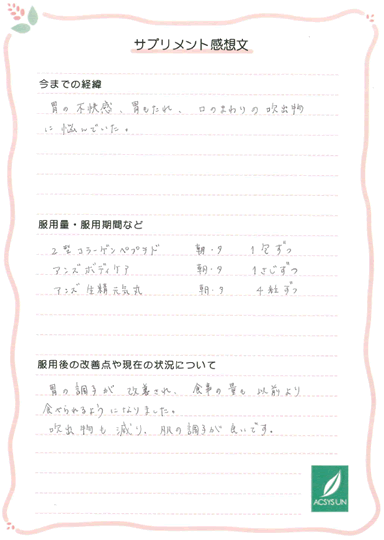 サプリメント感想文
今までの経緯
胃の不快感、胃もたれ、口のまわりの吹出物
に悩んでいた。
服用量・服用期間など
2型コラーゲンペプチド 朝・夕 1包ずつ
アンズボディケア 朝・夕 1さじずつ
アンズ生精元気丸 朝・夕 4粒ずつ
服用後の改善点や現在の状況について
胃の調子が改善され、食事の量も以前より
食べられるようになりました。
吹出物も減り、肌の調子が良いです。
ACSYSUN